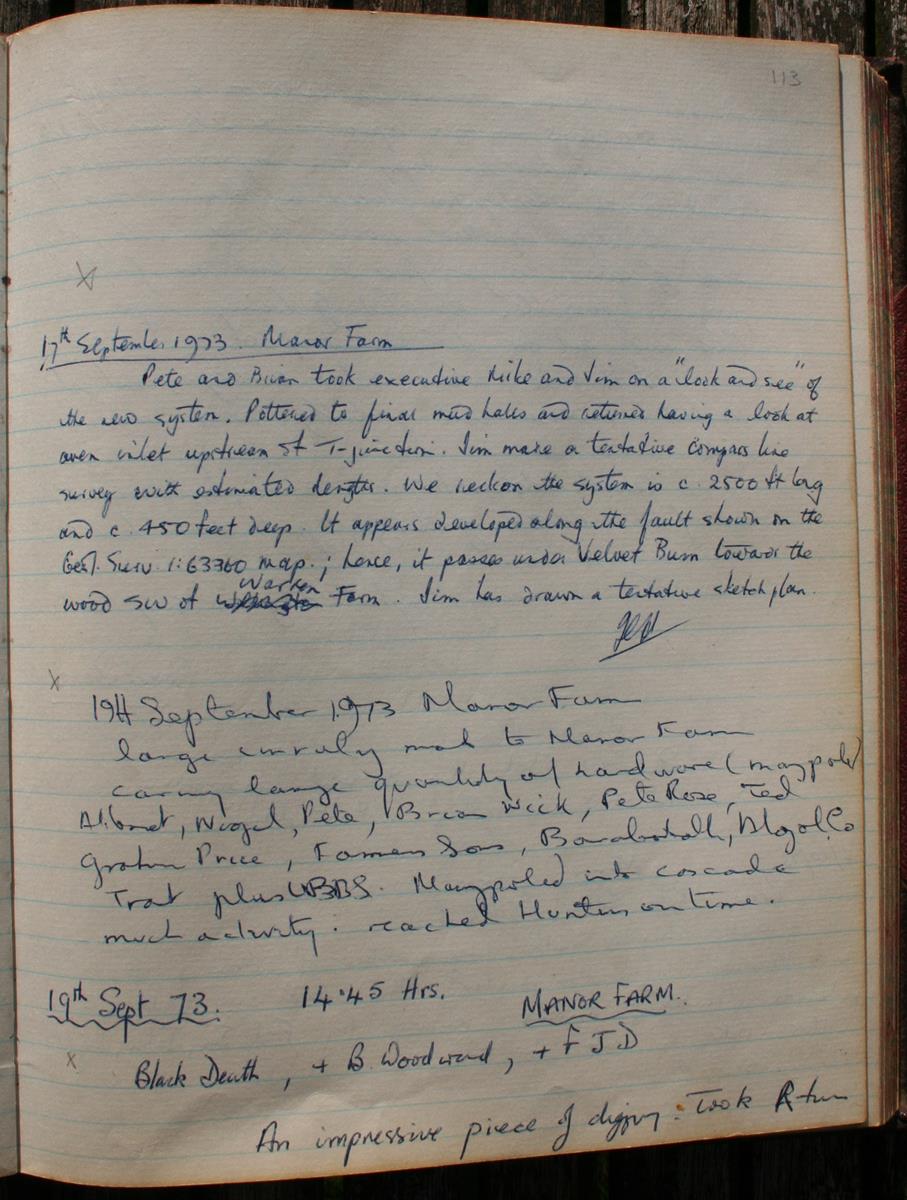 113
17th September 1973. Manor Farm
Pete and Brian took executive Mike and Jim on a "look and see" of
the new system. Pottered to final mud hales and returned having a look at
aven inlet upstream of T-junction. Jim make a tentative compass line
survey with estimated lengths. We reckon the system is c. 2500 ft long
and c. 450 feet deep. It appears developed along the fault shown on the
Geol. Surv. 1:63360 map.; hence, it passes under Velvet Bum towards the
wood SW of Warren Farm. Jim has drawn a tentative sketch plan.
19th September 1973 Manor Farm
large unruly mob to Manor Farm
carrying large quantity of hardware (maypole)
Nigel, Pete, Brian Nick, Pete Rose, Ted
Graham Price, Farmers Sons,
Trat plus BBS. Maypoled into cascade
much activity. reached Hunters on time.
19th Sept 73. 14.45 Hrs. MANOR FARM.
Black Death, + B. Woodward, + F J D
An impressive piece of digging. Took